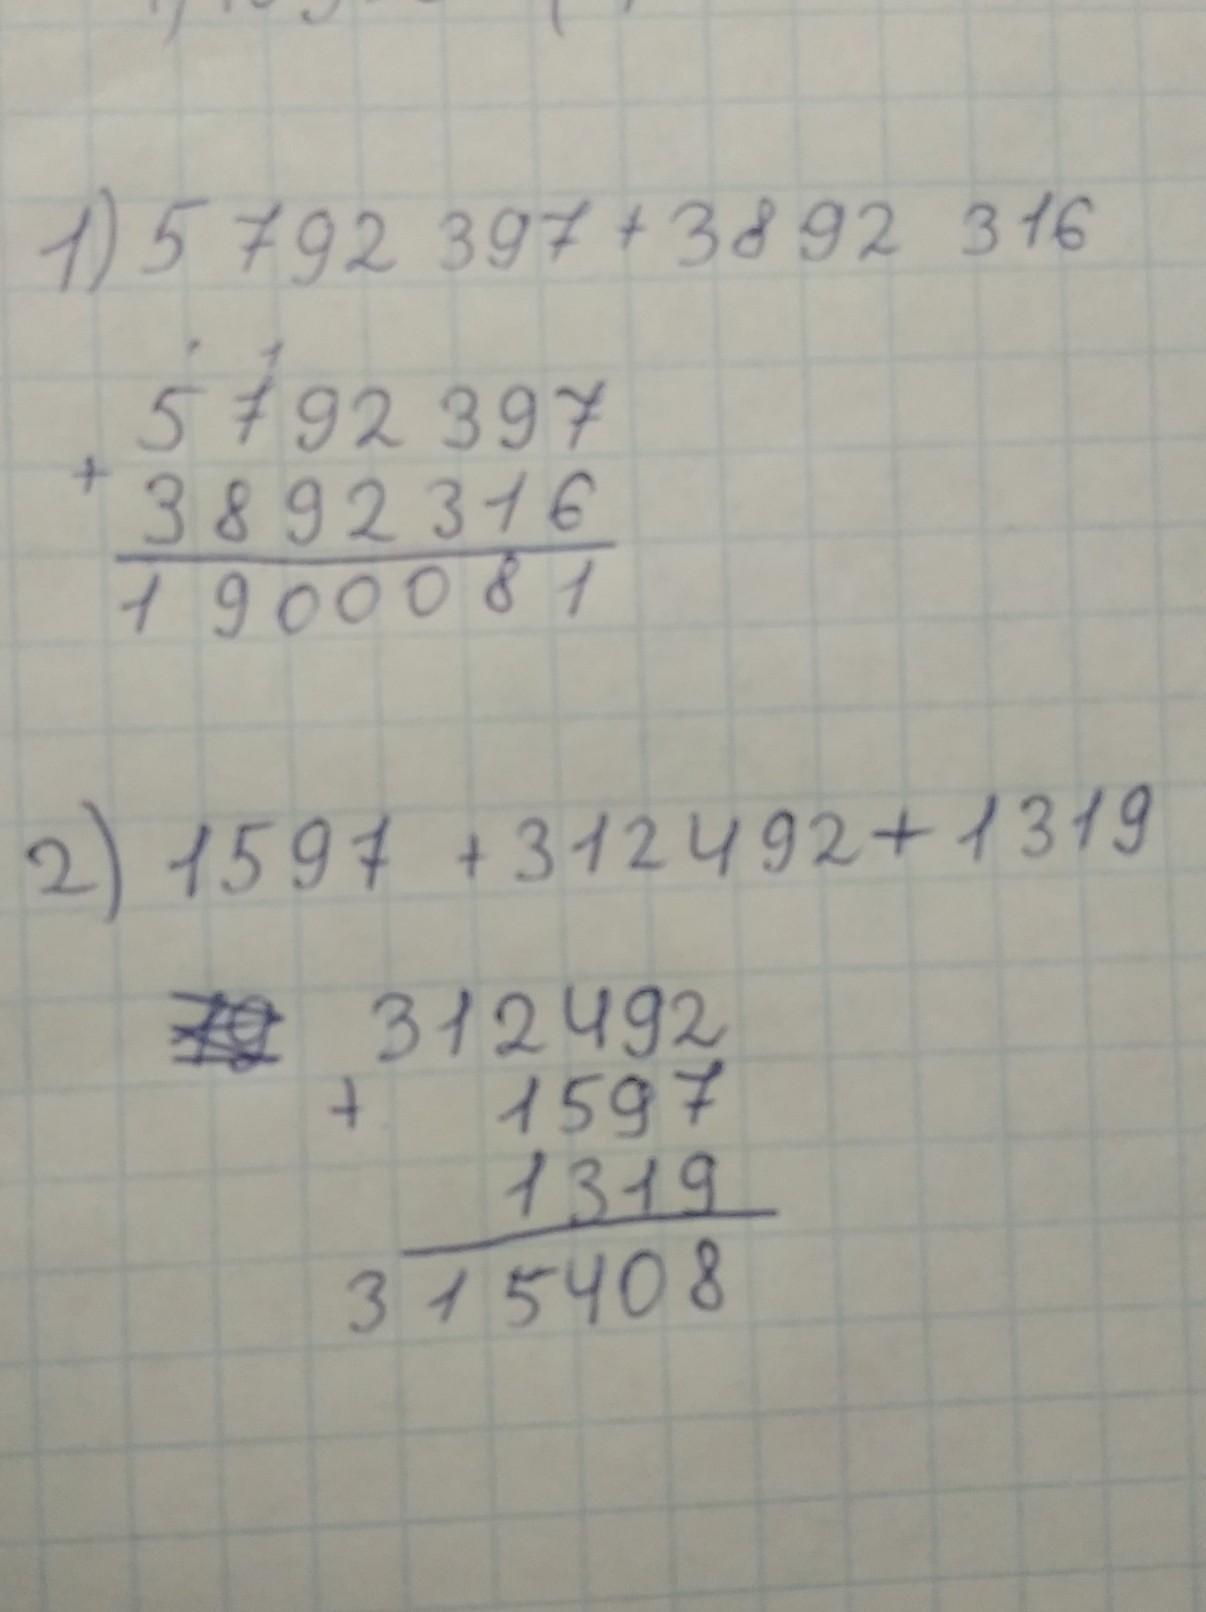 1) 5 792 397 + 3892 316
5 792 397
+
3892316
1900081
2) 1597 + 312492 + 1319
312492
+ 1597
1319
315408